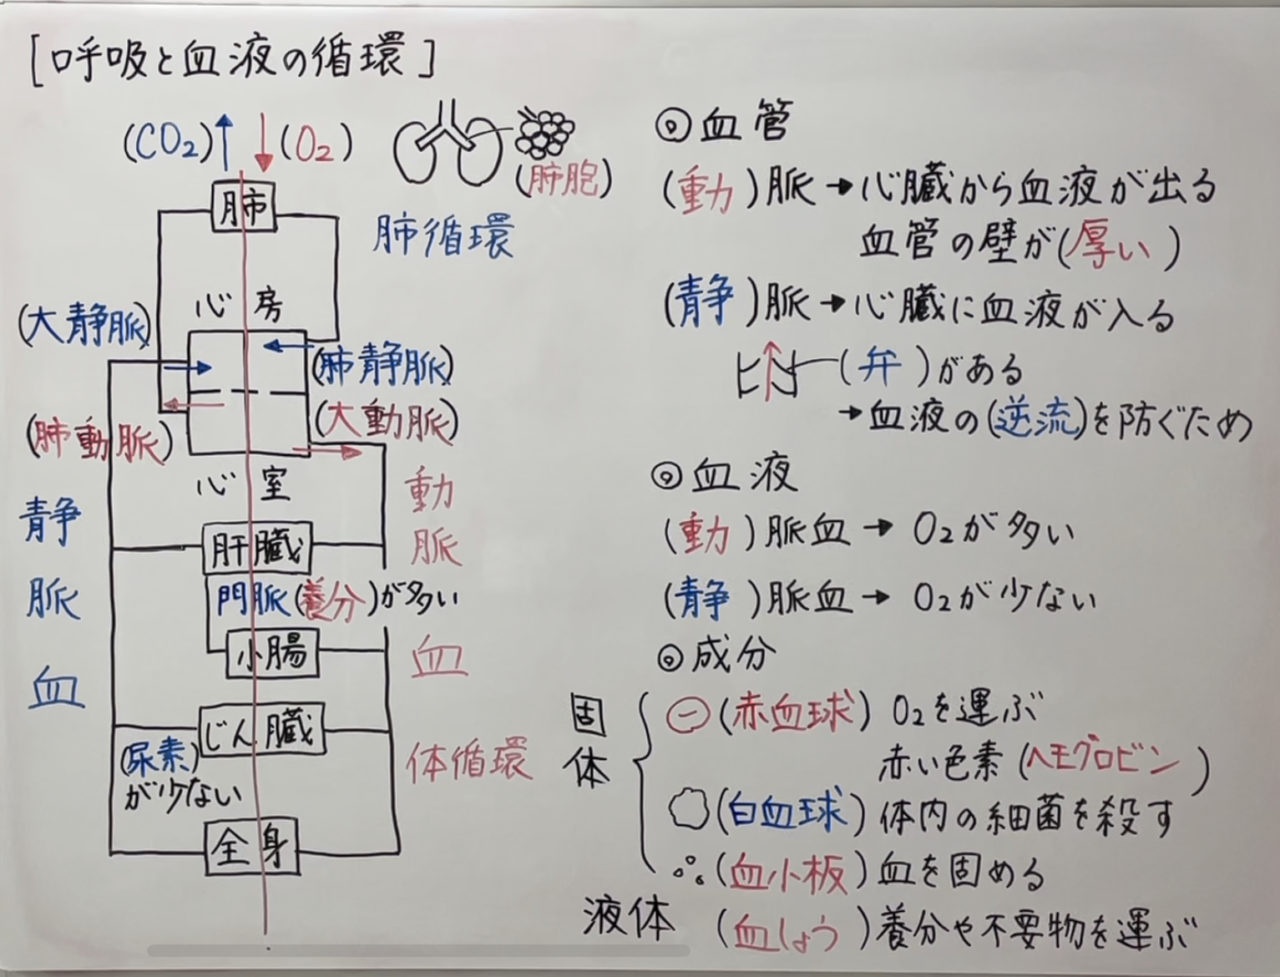 [呼吸と血液の循環]
(CO₂) (O₂)
(肺胞)
肺
肺循環
心房
(大静脈)
(肺静脈)
(肺動脈)
(大動脈)
心室
静脈血
動脈血
肝臓
門脈(養分)が多い
小腸
じん臓
(尿素)
が少ない
体循環
全身
◎血管
(動)脈→心臓から血液が出る
血管の壁が(厚い)
(静)脈→心臓に血液が入る
(弁)がある
→血液の(逆流)を防ぐため
◎血液
(動)脈血→O₂が多い
(静)脈血→O₂が少ない
◎成分
固体
(赤血球) O₂を運ぶ
赤い色素(ヘモグロビン)
(白血球) 体内の細菌を殺す
(血小板) 血を固める
液体 (血しょう) 養分や不要物を運ぶ